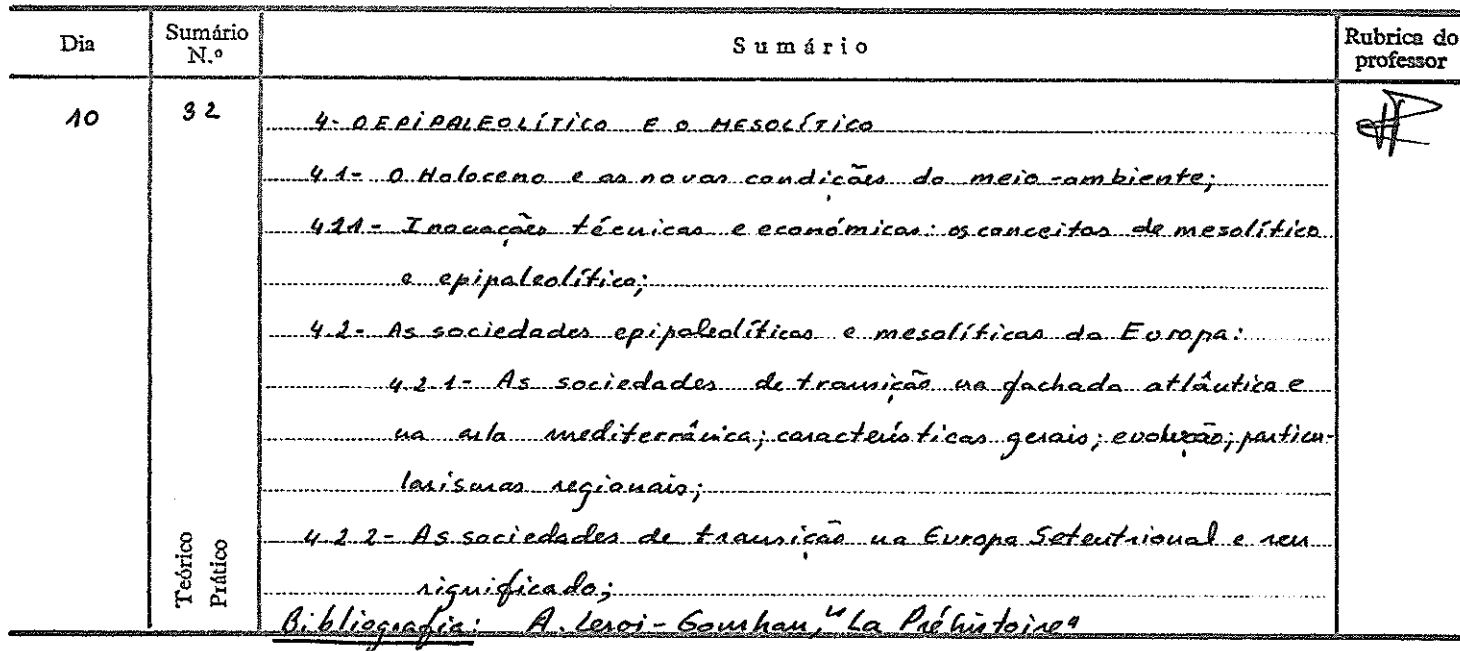 Dia
Sumário N.º
Sumário
Rubrica do professor
10
32
4- O EPIPALEOLÍTICO E O MESOLÍTICO
4.1- O Holoceno e as novas condições do meio-ambiente;
4.2.1- Inovações técnicas e económicas: os conceitos de mesolítico
e epipaleolítico;
4.2- As sociedades epipaleolíticas e mesolíticas da Europa:
4.2.1- As sociedades de transição na fachada atlântica e
na orla mediterrânica; características gerais; evolução; particu-
larismos regionais;
4.2.2- As sociedades de transição na Europa Setentrional e seu
significado;
Teórico
Prático
Bibliografia: A. Leroi-Gourhan, "La Préhistoire"